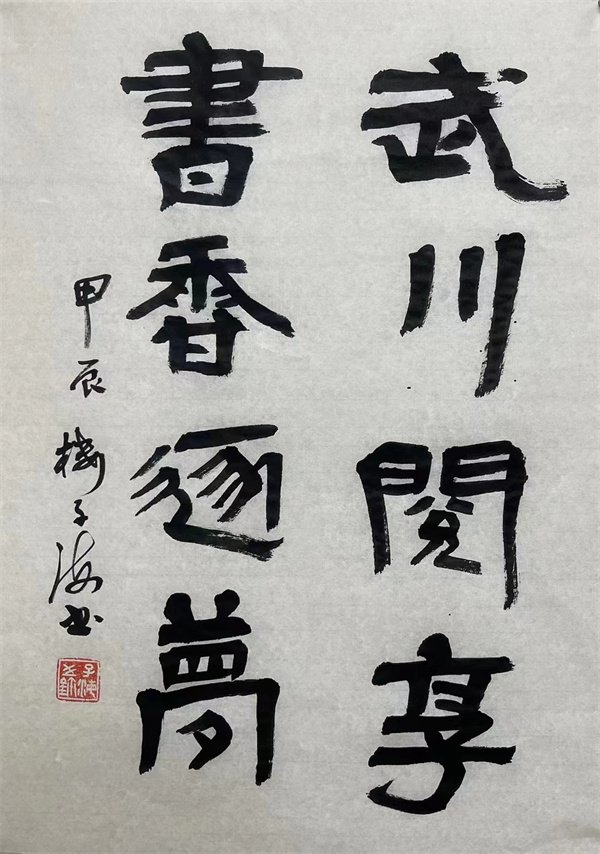 武川閱享
書香逐夢
甲辰 樓子海书